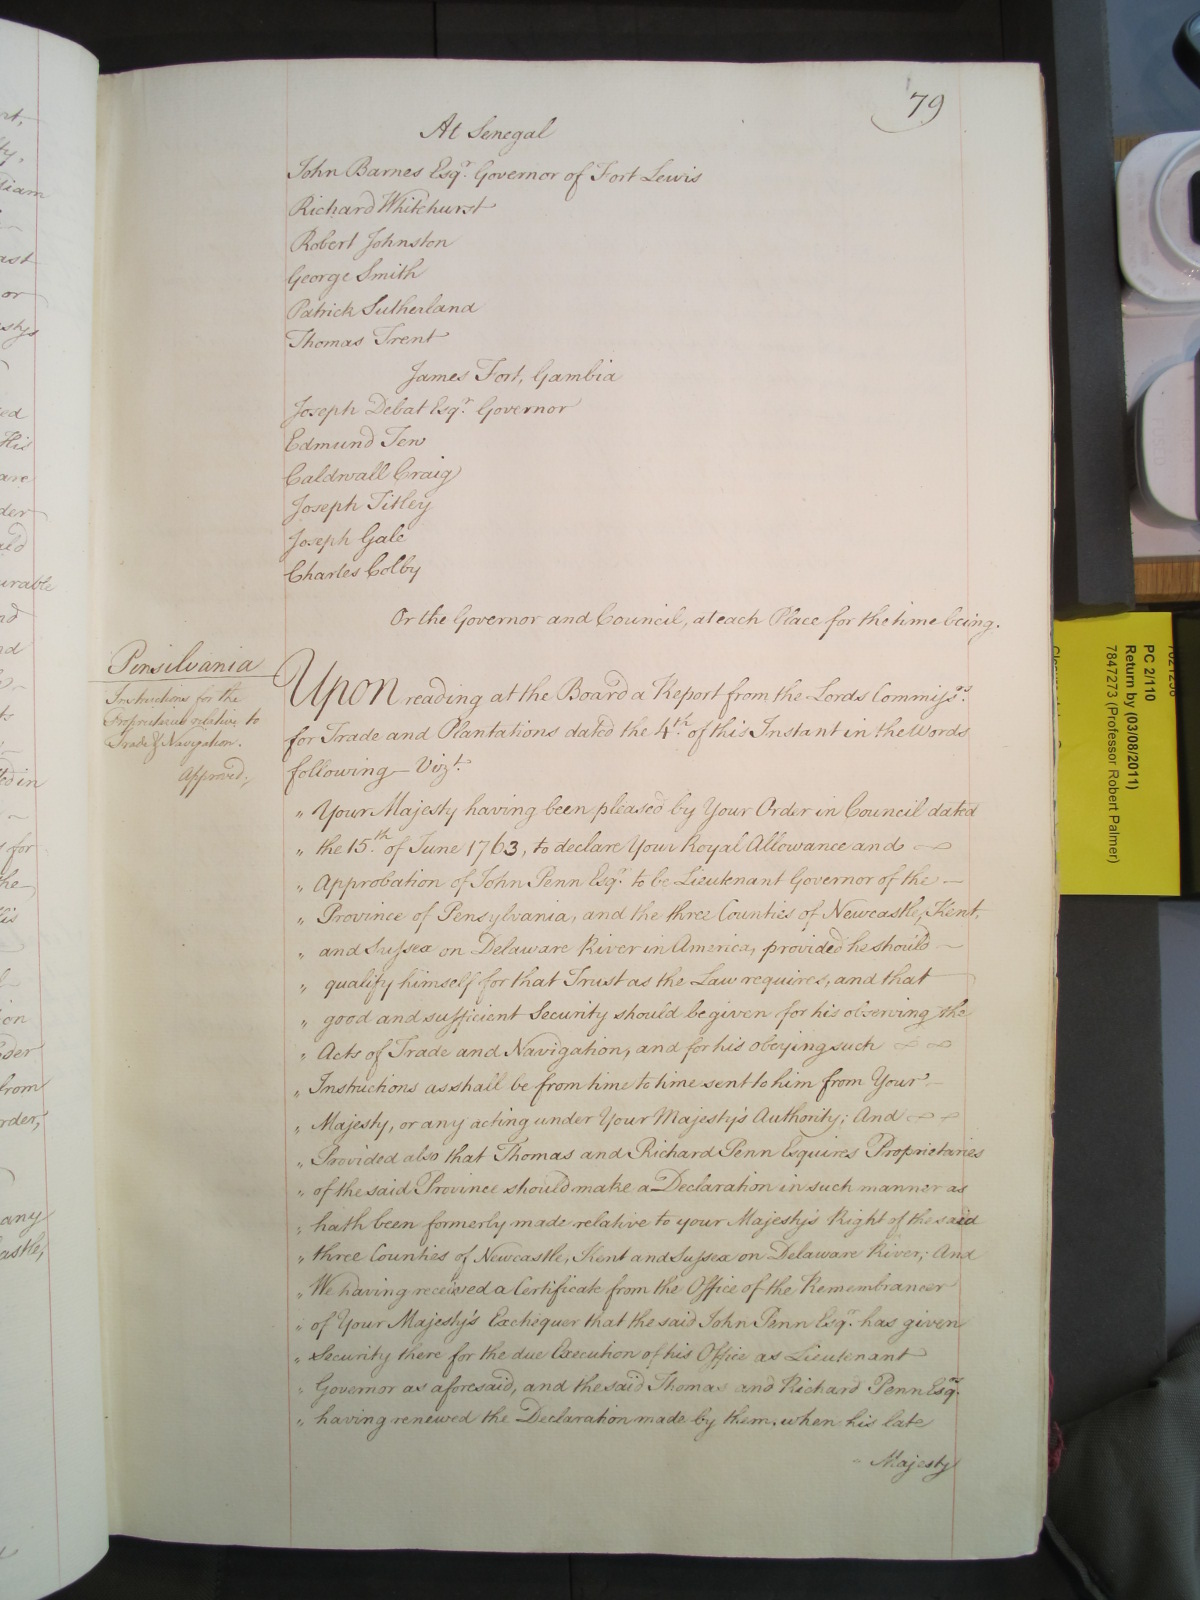 79
At Senegal
John Barnes Esqr. Governor of Fort Lewis
Richard Whitehurst
Robert Johnston
George Smith
Patrick Sutherland
Thomas Trent
James Fort, Gambia
Joseph Debat Esqr. Governor
Edmund Tew
Caldwall Craig
Joseph Titley
Joseph Gale
Charles Colby
Or the Governor and Council, at each Place for the time being.
Pensilvania
Instructions for the
Proprietarys relative to
Trade & Navigation.
Approved;
Upon reading at the Board a Report from the Lords Commissrs.
for Trade and Plantations dated the 4th. of this Instant in the Words
following – Vizt.
" Your Majesty having been pleased by Your Order in Council dated
" the 15th. of June 1763, to declare Your Royal Allowance and
" Approbation of John Penn Esqr. to be Lieutenant Governor of the –
" Province of Pensylvania, and the three Counties of Newcastle, Kent,
" and Sussex on Delaware River in America, provided he should –
" qualify himself for that Trust as the Law requires, and that
" good and sufficient Security should be given for his observing the
" Acts of Trade and Navigation, and for his obeying such
" Instructions as shall be from time to time sent to him from Your –
" Majesty, or any acting under Your Majesty's Authority; And
" Provided also that Thomas and Richard Penn Esquires Proprietaries
" of the said Province should make a Declaration in such manner as
" hath been formerly made relative to your Majesty's Right of the said
" three Counties of Newcastle, Kent and Sussex on Delaware River; And
" We having received a Certificate from the Office of the Remembrancer
" of Your Majesty's Exchequer that the said John Penn Esqr. has given
" Security there for the due Execution of his Office as Lieutenant
" Governor as aforesaid, and the said Thomas and Richard Penn Esqrs.
" having renewed the Declaration made by them, when his late
" Majesty
PC 2/110
Return by (03/08/2011)
7847273 (Professor Robert Palmer)